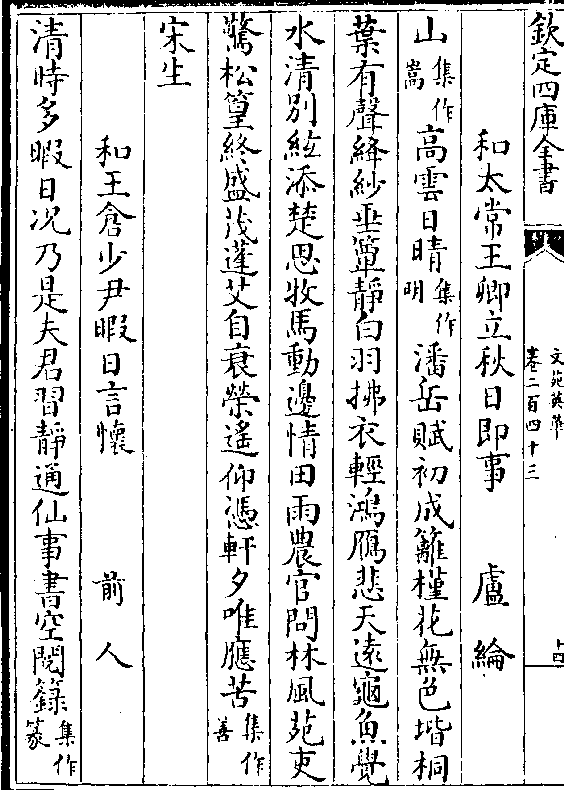 欽定四庫全書
文苑英華
卷二百四十三
十四
和太常王卿立秋日即事 盧綸
山集作嵩高雲日晴集作明潘岳賦初成籬槿花無色堦桐
葉有聲絳紗垂簟靜白羽拂衣輕鴻鴈悲天遠龜魚覺
水清別絃添楚思牧馬動邊情田雨農官問林風苑吏
驚松篁終盛茂蓬艾自衰榮遙仰憑軒夕唯應苦集作善
宋生
和王倉少尹暇日言懷 前人
清時多暇日况乃是夫君習靜通仙事書空閱籙集作篆